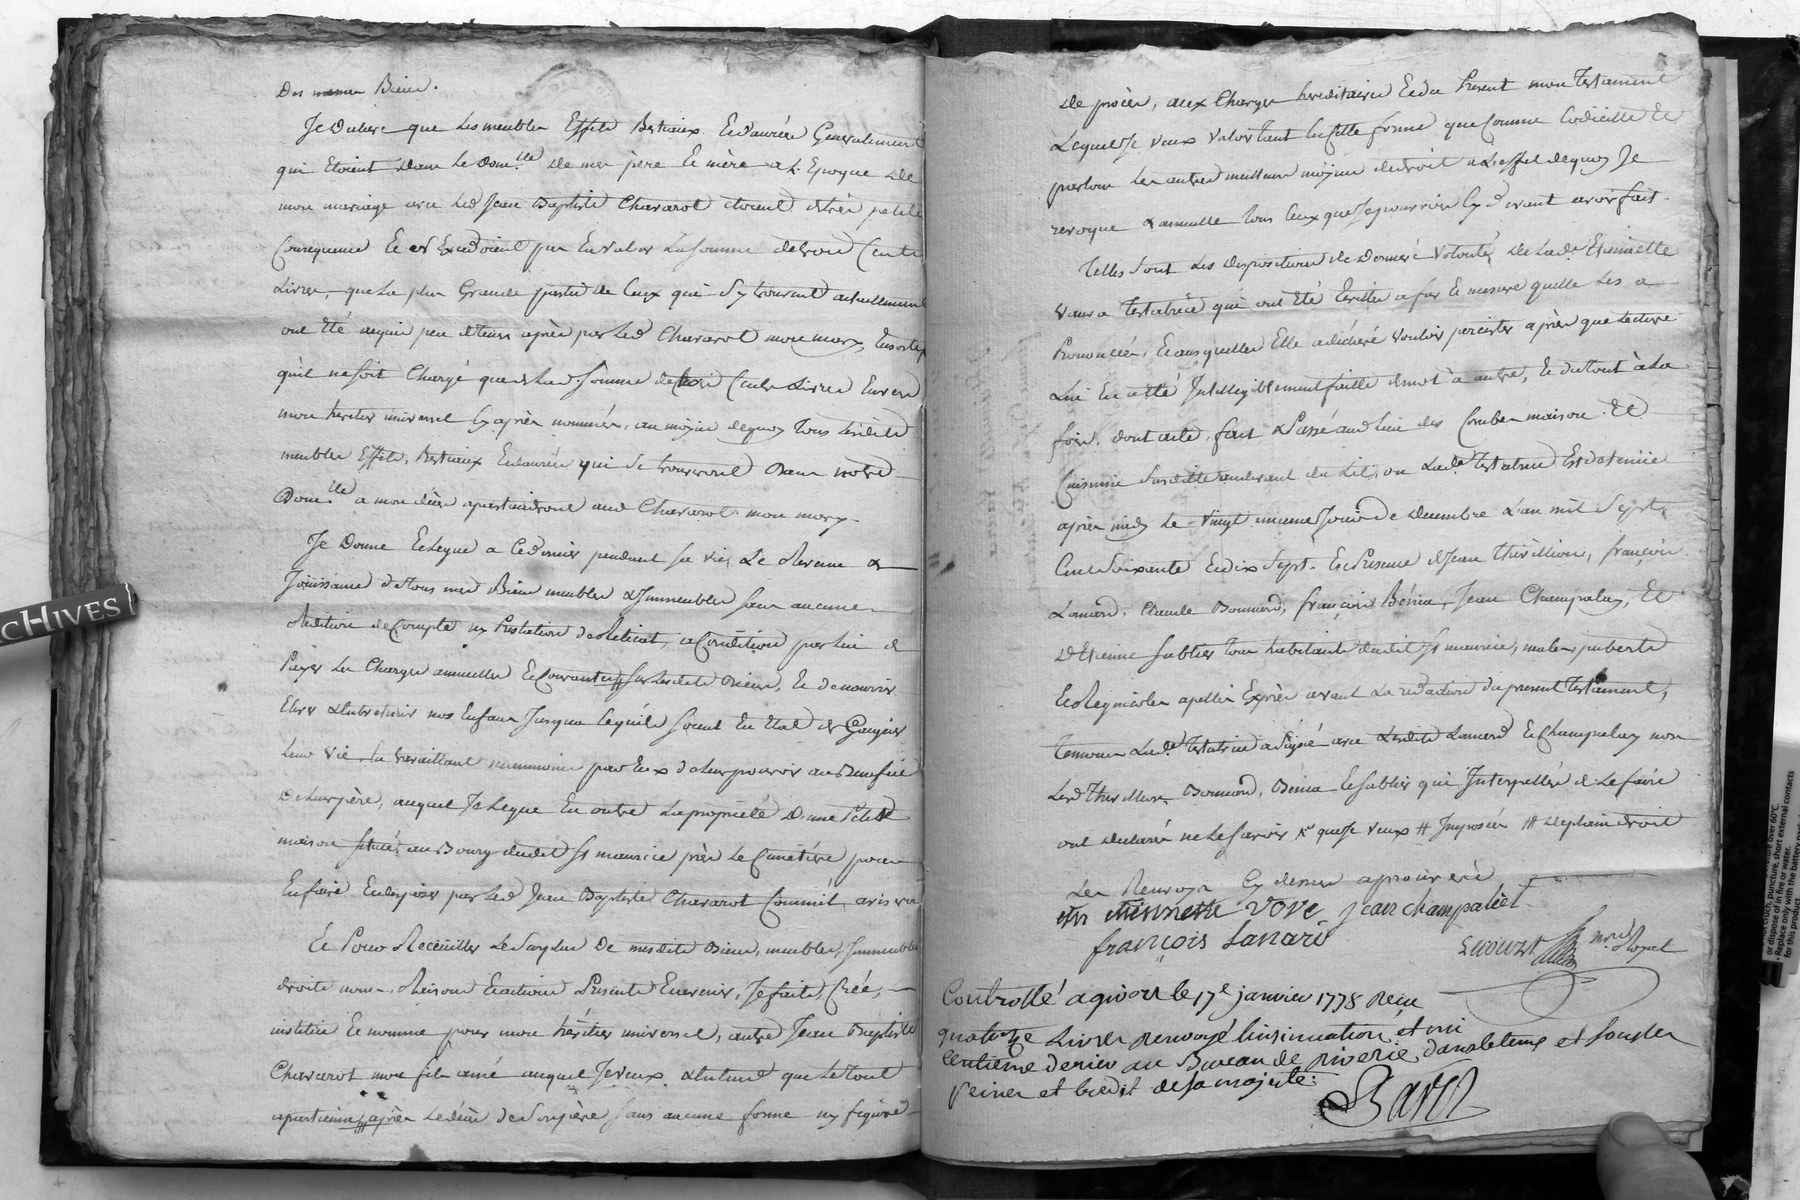 Des mesmes Biens.
Je declare que les meubles Effets Bestiaux Endanrées Generalement
qui Etoient dans le dom.lle de mes père Et mère a L'Epoque de
mon mariage avec led Jean Baptiste Chavarot etoient detrès petite
Consequence Et nExedoient pas En valeur La somme detrois Cents
Livres, que la plus Grande partie de Ceux qui S'y trouvent actuellement
ont Eté acquis peu detems après par led Chavarot mon mary, Ensorte
qu'il ne soit Chargé que de lad. somme de trois Cents Livres Envers
mon heritier universel Cy après nommé, au moyen dequoy tous lesdits
meubles Effets, bestiaux Endanrées qui se trouveront Dans notre
Dom.lle a mon décès apartiendront aud Chavarot mon mary.
Je Donne Et Legue a Ce dernier pendant sa vie, Le Revenu &
Jouissance detous mes Biens meubles & Immeubles sans aucune
Reddition de Compte ny Prestation de Reliqat, a Condition par lui de
Payer les Charges annuelles Et Courantes sur lesdits Biens, Et de nourrir
Elever & Entretenir nos Enfans Jusqua Cequ'ils soient En Etat de Gaigner
leur vie, En travaillant neanmoins par Eux de leur pouvoir au Benefice
de leur père, auquel Je Legue En outre La proprieté D'une Petite
maison située au Bourg dudit St maurice près le Cimetière pour
Enfaire Endisposer par led Jean Baptiste Chavarot Comme il avisera
Et Pour Receüillir Le surplus De mesdits Biens, meubles, Immeubles
droits noms, Raisons Et actions Presents Et avenir, Je fais, Créé,
institue Et nomme pour mon héritier universel, autre Jean Baptiste
Chavarot mon fils ainé auquel Je veux & Entend que le tout
apartienne après Le décès de son père sans aucune forme ny figure
de procès, aux Charges hereditaires Et du Present mon testament
Lequel Je veux valoir tant En cette forme que Comme Codicille Et
par tous les autres meilleurs moyens de droit a L'effet dequoy Je
revoque & annulle tous Ceux que Je pourrois Cy devant avoir fait.
Telles sont Les dispositions de Derniere Volonté de Lad.e Etiennette
Vove Testatrice qui ont Eté Ecrittes a fur Et mesure quelle les a
Prononcées, Et ausquelles Elle a declaré vouloir percister après que lecture
Lui En a Eté Intelligiblement faitte de mot à autre, Et du tout à la
fois. dont acte, fait & Passé aud lieu des Combes maison Et
Cuisine susditte audevant du Lit, ou Lad.e testatrice Est detenüe
après midy Le vingt uneme Jour de decembre L'an mil Sept
Cent Soixante Et dix Sept. En Presence de Jean thivillion, françois
Lanard, Claude Bonnard, françois Bénia, Jean Champalay, Et
D'Etienne Sablier tous habitants dudit St maurice, males, puberts
Et Regnicoles apellés Exprès avant La redaction du present testament,
temoins Lad.e testatrice a signé avec Lesdits Lanard Et Champalay non
Lesd thivillion, Bonnard, Bénia Et Sablier qui Interpellés de Le faire
ont declaré ne Le savoir que Je veux # Imposées # de plein droit
Les Renvoys Cy dessus aprouvés
etiennette Vove jean champalet
françois Lanard
n.re Royal
Controllé a givors le 17e janvier 1778 Reçu
quatorze Livres renvoyé linsinuation et mi
centième denier au Bureau de riverie, dans le tems et sous les
peines et l'edit de sa majesté: